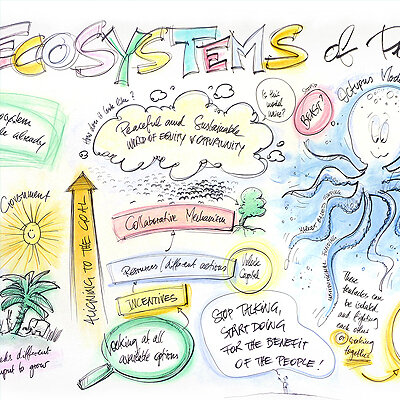 ECOSYSTEMS of
osystem
already
How does it look like?
Peaceful and Sustainable
WORLD OF EQUITY & OPPORTUNITY
Is this world wide?
BEAST?
Octopus
Government
ALIGNING TO THE GOAL
Collaborative Mechanism
Resources/different actions
Capital
INCENTIVES
Looking at all
available options
STOP TALKING,
START DOING
FOR THE BENEFIT
OF THE PEOPLE!
These
tentacles can
be isolated
and fighting
each other
or working
together
different
to grow